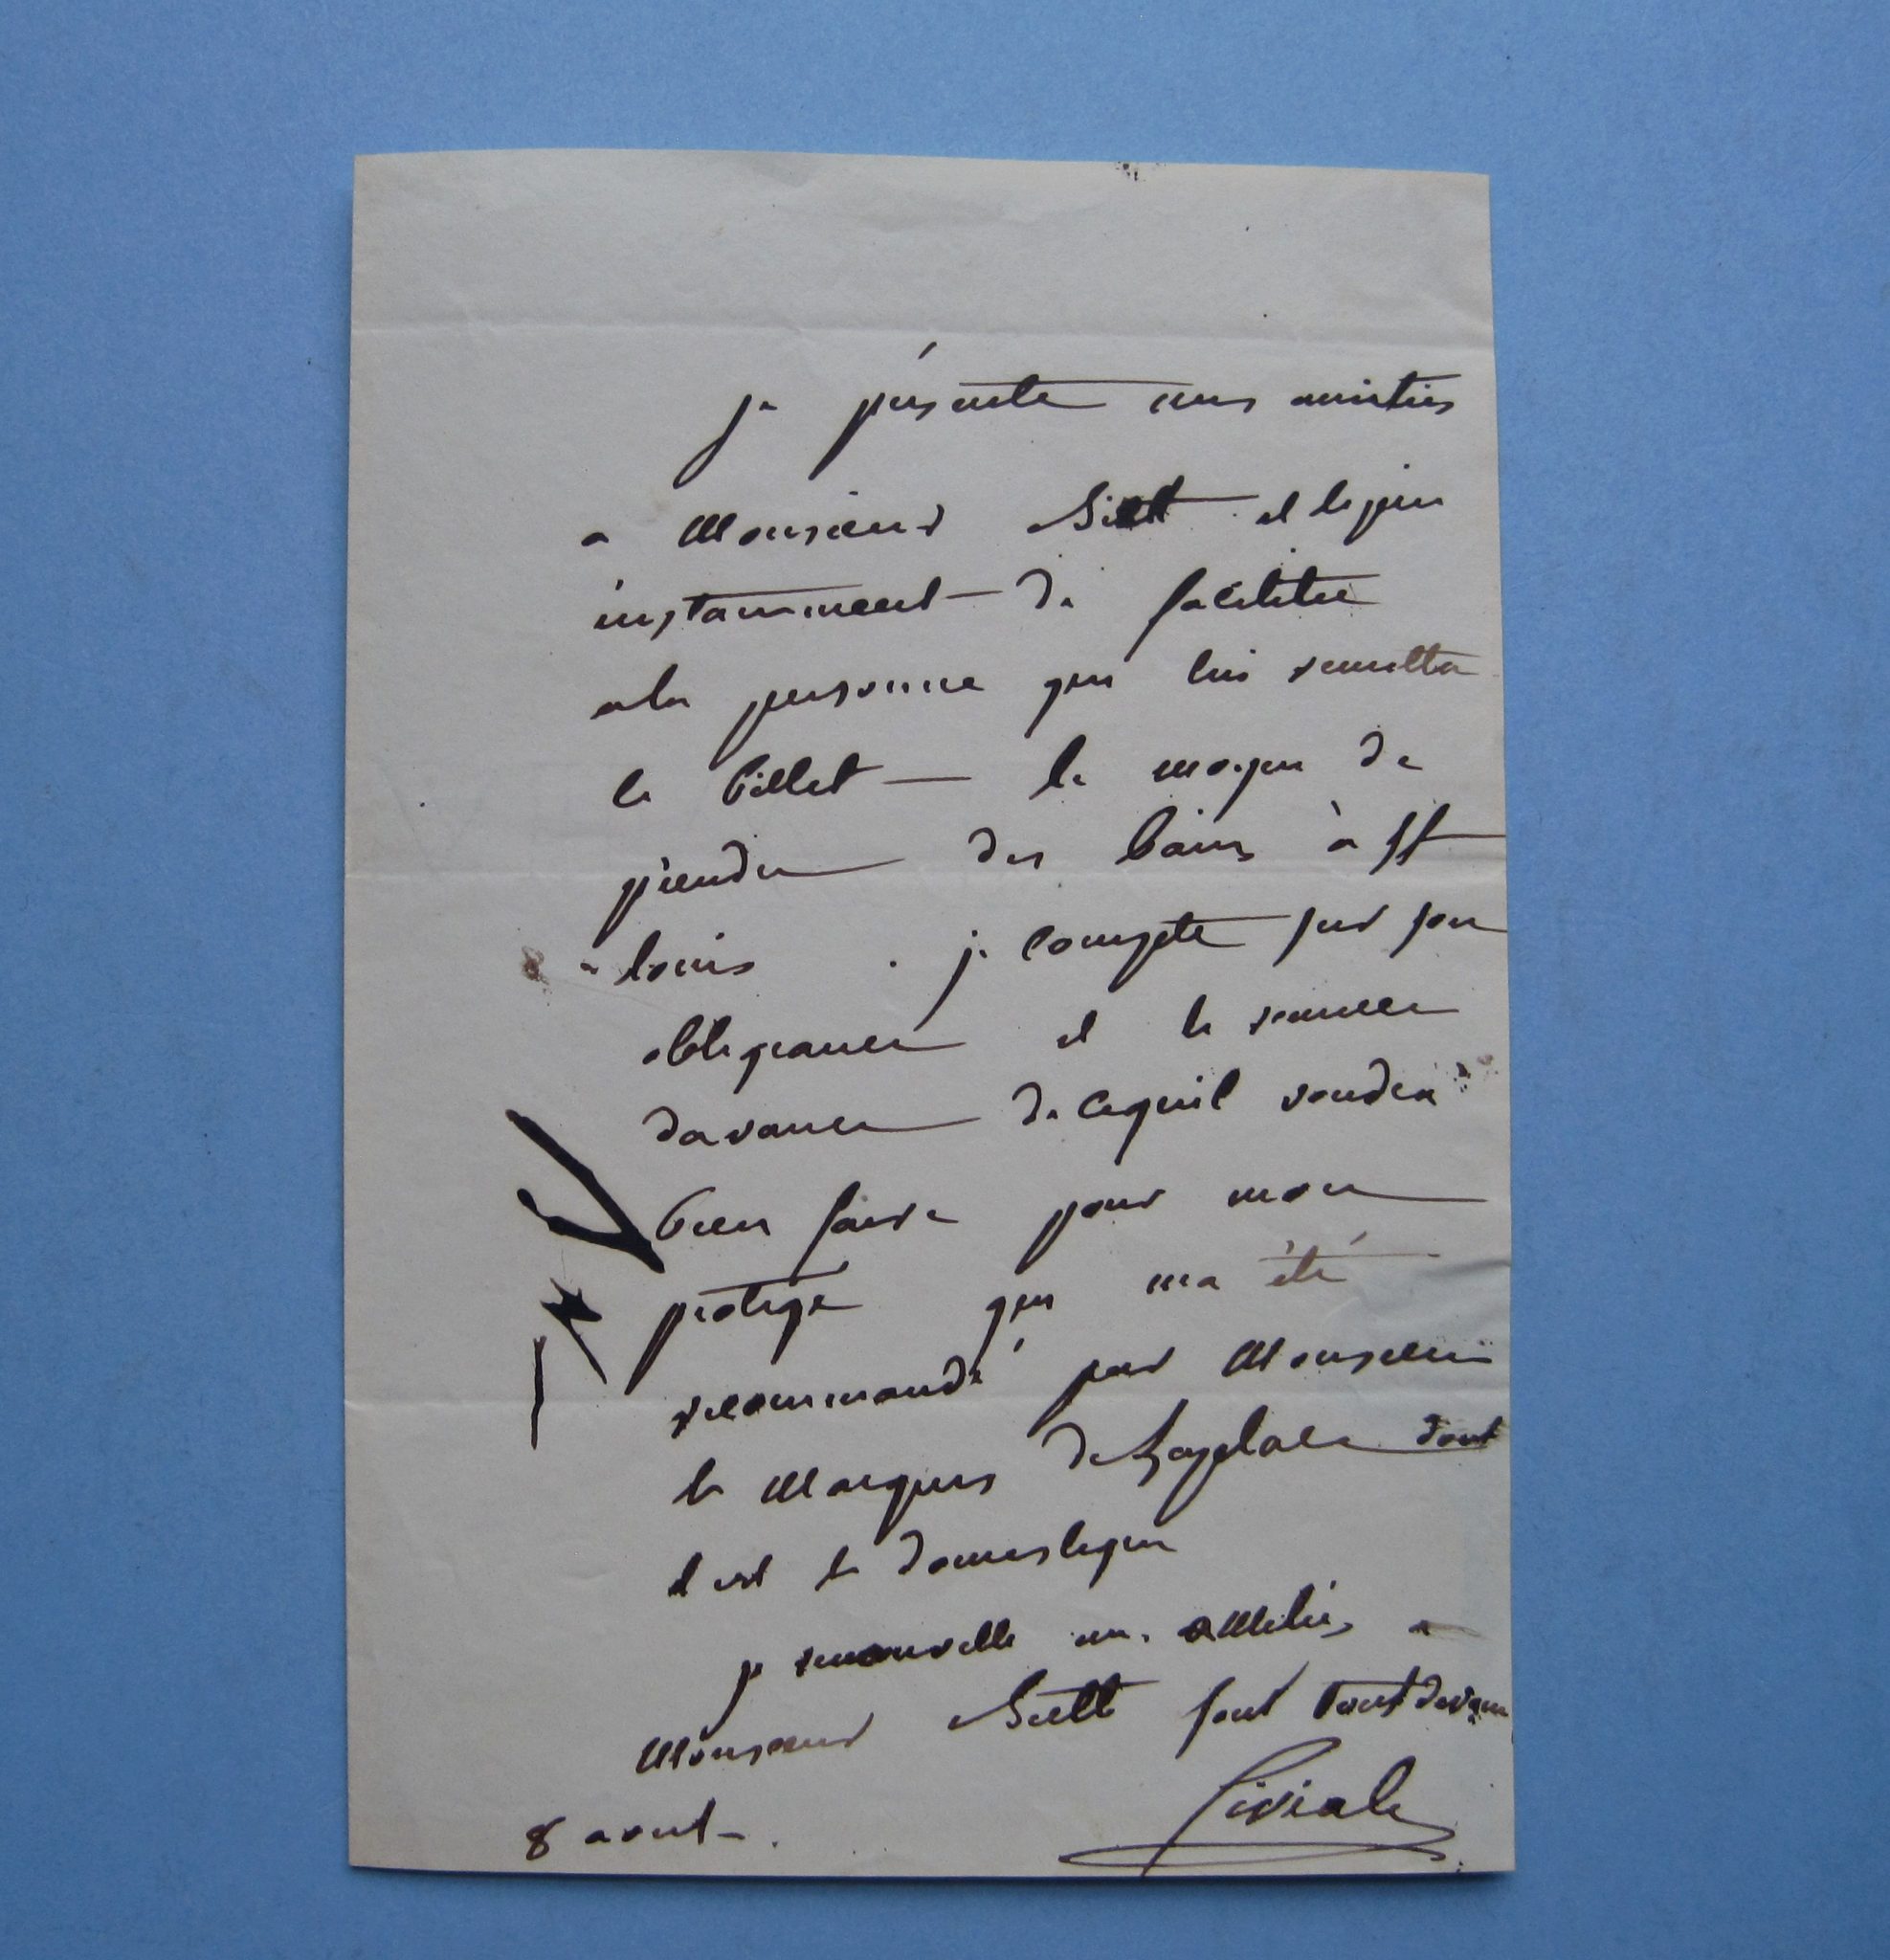 je présente mes amitiés
a Monsieur Biett et le prie
instamment de faciliter
a la personne qui lui remettra
le billet le moyen de
prendre des bains à St
louis . je compte sur son
obligeance et le remercie
davance de cequil voudra
bien faire pour mon
protégé qui ma été
recommandé par Monsieur
le Marquis de Laplace dont
il est le domestique
je renouvelle mes amitiés a
Monsieur Biett sont tout devoué
Civiale
8 aout .